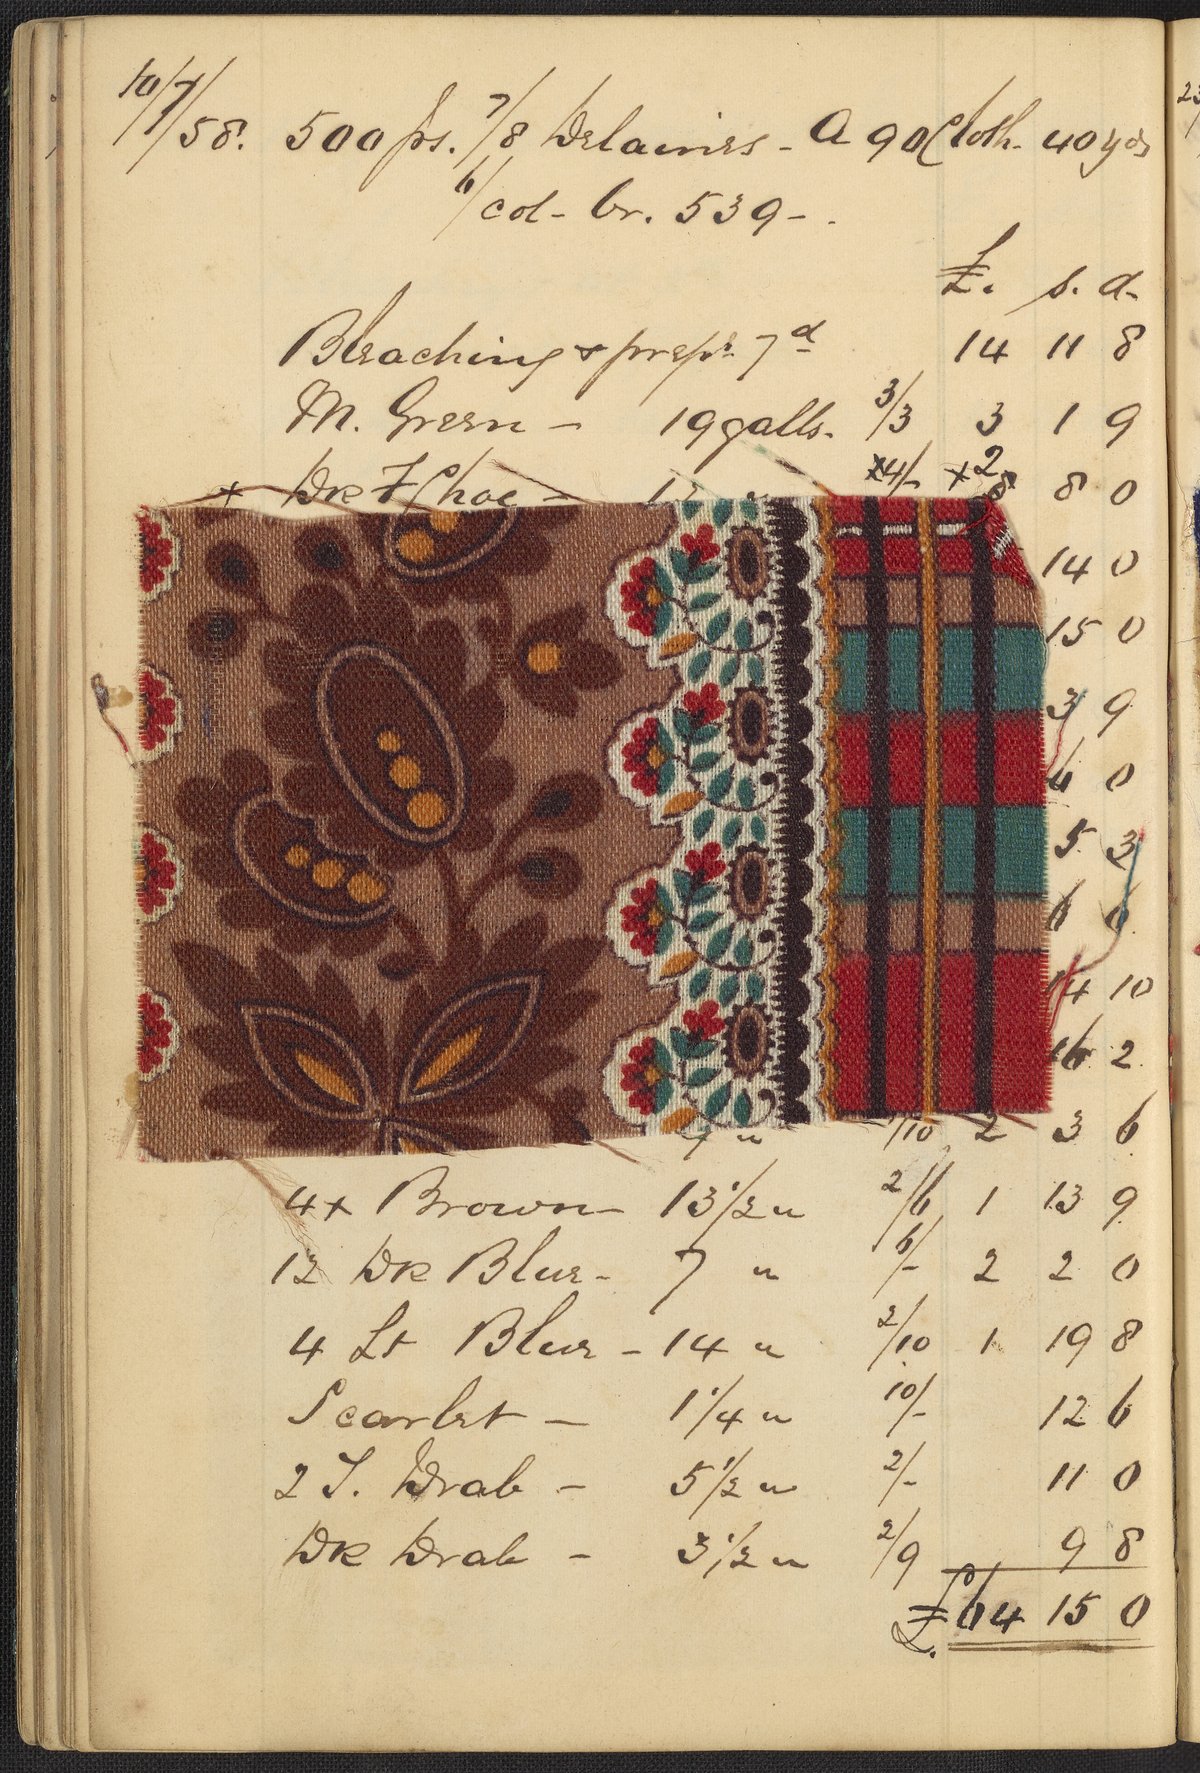 10/7/58. 500 ps. 7/8 Delaines - A 90 Cloth. 40 yds
6/col - br. 539 - .
£. s. d.
Bleaching & prepg. 7d 14 11 8
M. Green - 19 galls. 3/3 3 1 9
x Dk F Choc - 12 " x4/- x2 8 0
14 0
15 0
3 9
6 0
5 3
6 6
14 10
16 2
9 " /10 2 3 6
4x Brown - 13 1/2 " 2/6 1 13 9
12 Dk Blue - 7 " 6/- 2 2 0
4 Lt Blue - 14 " 2/10 1 19 8
Scarlet - 1 1/4 " 10/- 12 6
2 T. Drab - 5 1/2 " 2/- 11 0
Dk Drab - 3 1/2 " 2/9 9 8
£64 15 0